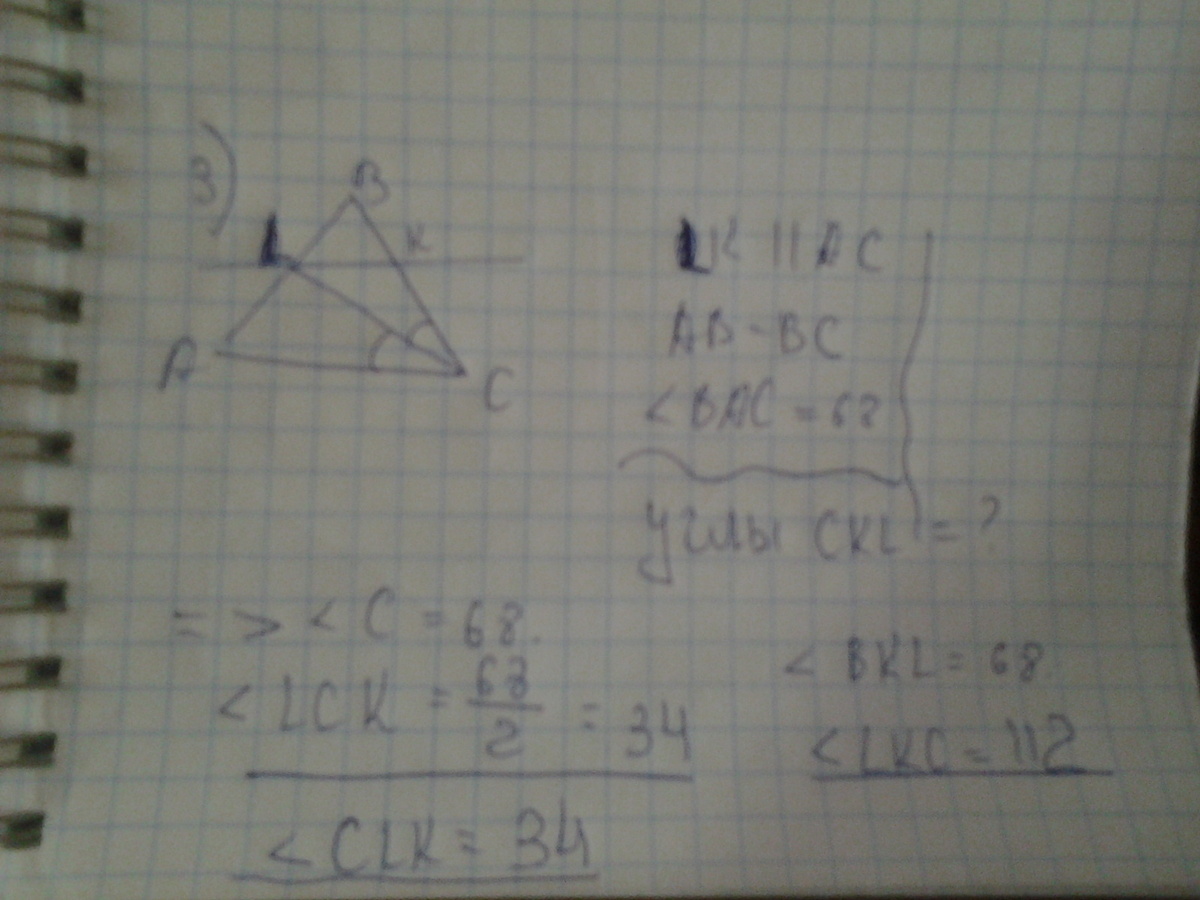 3)
B
L
K
A
C
LK || AC
AB - BC
< BAC = 68
углы CKL = ?
= > < C = 68.
< LCK = 68/2 = 34
< CLK = 34
< BKL = 68.
< LKC = 112